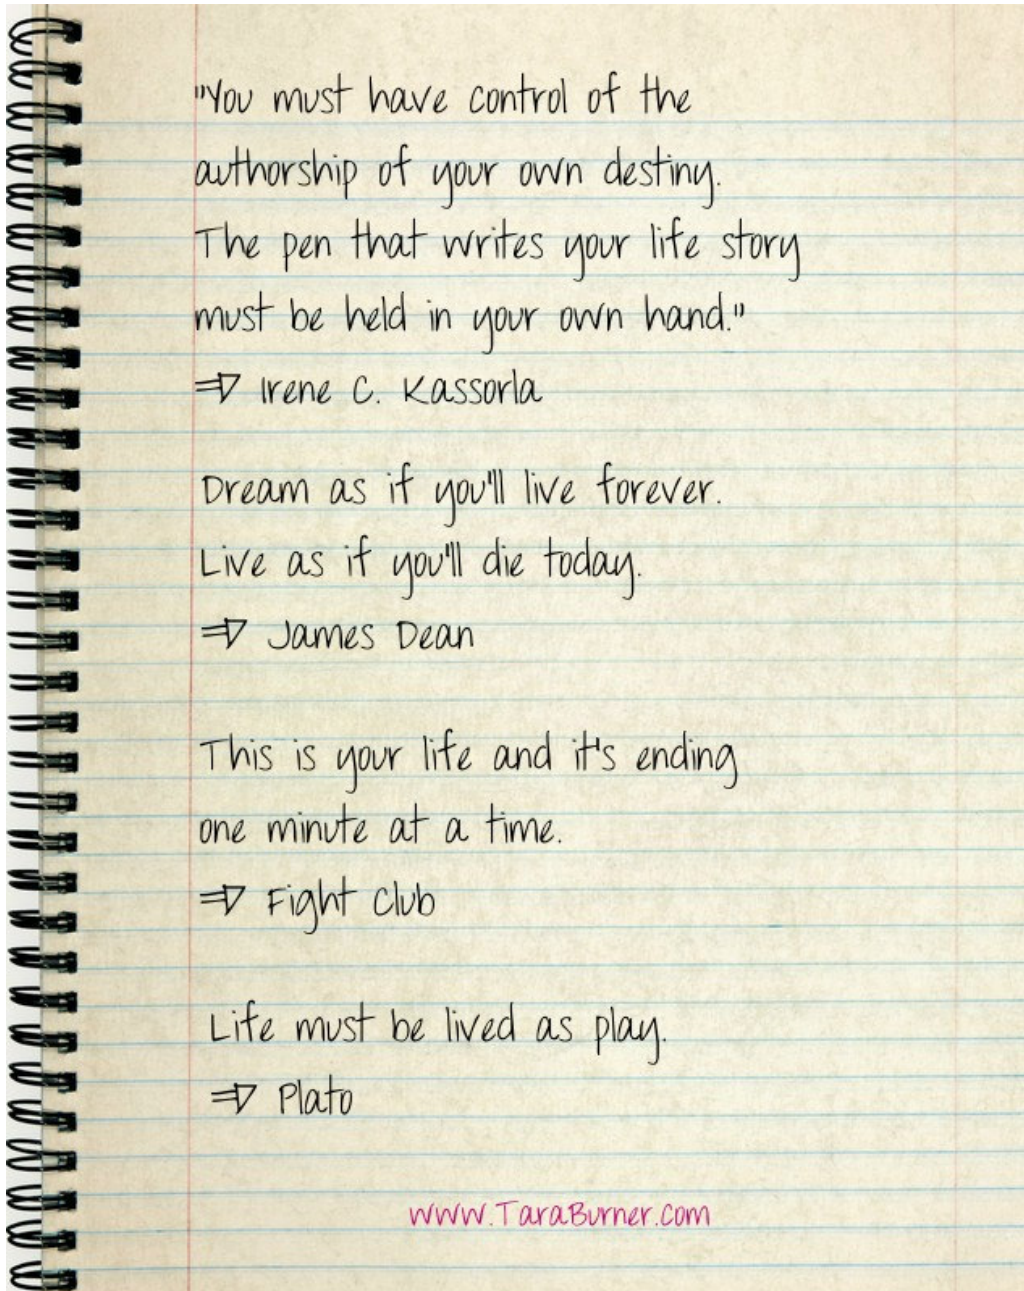 "You must have control of the
authorship of your own destiny.
The pen that writes your life story
must be held in your own hand."
⇒ Irene C. Kassorla
Dream as if you'll live forever.
Live as if you'll die today.
⇒ James Dean
This is your life and it's ending
one minute at a time.
⇒ Fight Club
Life must be lived as play.
⇒ Plato
www.TaraBurner.com